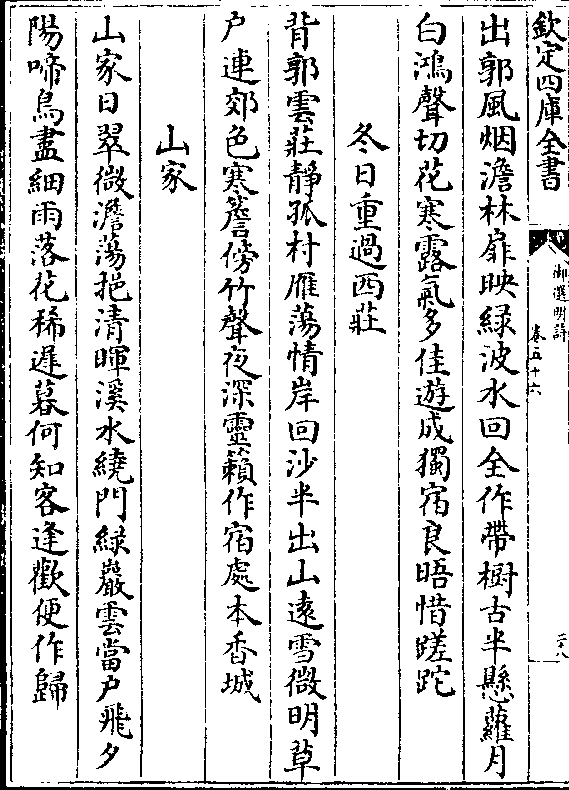 欽定四庫全書
御選明詩
卷五十六
二八
出郭風烟澹林扉映綠波水回全作帶樹古半懸蘿月
白鴻聲切花寒露氣多佳遊成獨宿良晤惜蹉跎
冬日重過西莊
背郭雲莊靜孤村雁蕩情岸回沙半出山遠雪微明草
戶連郊色寒簷傍竹聲夜深靈籟作宿處本香城
山家
山家日翠微澹蕩挹清暉溪水繞門綠巖雲當戶飛夕
陽啼鳥盡細雨落花稀遲暮何知客逢歡便作歸